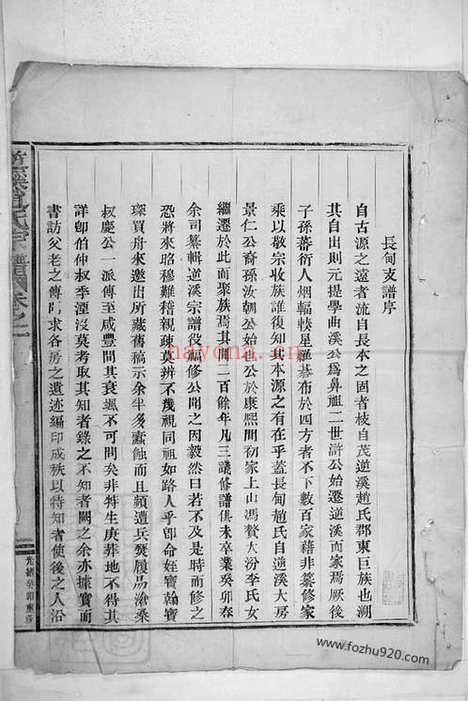 長甸支譜序
自古源之遠者流自長本之固者枝自茂逆溪趙氏郡東巨族也溯
其自出則元提學曲溪公為鼻祖二世滸公始遷逆溪而家焉厥後
子孫蕃衍人烟輻輳星羅碁布於四方者不下數百家藉非纂修家
乘以敬宗收族誰復知其本源之有在乎蓋長甸趙氏自逆溪大房
景仁公裔孫汝朝公始公於康熙間初家上山馮贅大汾李氏女
繼遷於此而聚族焉其間二百餘年凡三議修譜俱未卒業癸卯春
余司纂輯逆溪宗譜役範修公聞之因毅然曰若不及是時而修之
恐將來昭穆難稽親疎莫辨不幾視同祖如路人乎卽命姪寶翰寶
琛買舟來邀出所藏舊稿示余半多蠹蝕而且頻遭兵燹屢易滄桑
叔慶公一派傳至咸豐間其衰颯不可問矣非特生庚葬地不得其
詳卽伯仲叔季湮沒莫考取其知者錄之不知者闕之余亦據實而
書訪父老之傳聞求各房之遺迹編印成族以待知者使後之人沿
氏宗譜 卷之一
光緒癸卯重修
hayona.cn
www.fozhu920.com